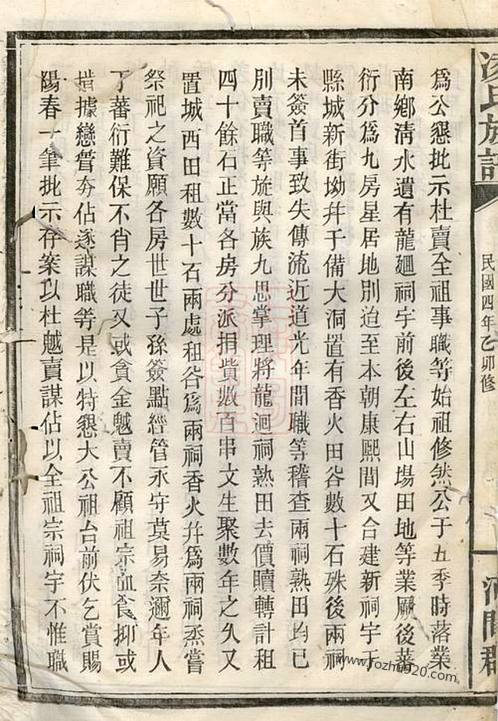 凌氏族譜
民國四年乙卯修
河間郡
為公懇批示杜賣全祖事職等始祖修然公于五季時落業
南鄉清水遺有龍廻祠宇前後左右山場田地等業厥後蕃
衍分為九房星居地別迨至本朝康熙間又合建新祠宇于
縣城新街坳并于備大洞置有香火田谷數十石殊後兩祠
未簽首事致失傳流近道光年間職等稽查兩祠熟田均已
別賣職等旋與族九思掌理將龍迴祠熟田去價贖轉計租
四十餘石正當各房分派捐貲數百串文生聚數年之久又
置城西田租數十石兩處租谷為兩祠香火并為兩祠烝嘗
祭祀之資願各房世世子孫簽點經管永守莫易奈邇年人
丁蕃衍難保不肖之徒又或貪金魆賣不顧祖宗血食抑或
措據戀管夯佔逐謀職等是以特懇大公祖台前伏乞賞賜
陽春一筆批示存案以杜魆賣謀佔以全祖宗祠宇不惟職
www.fozhu920.com